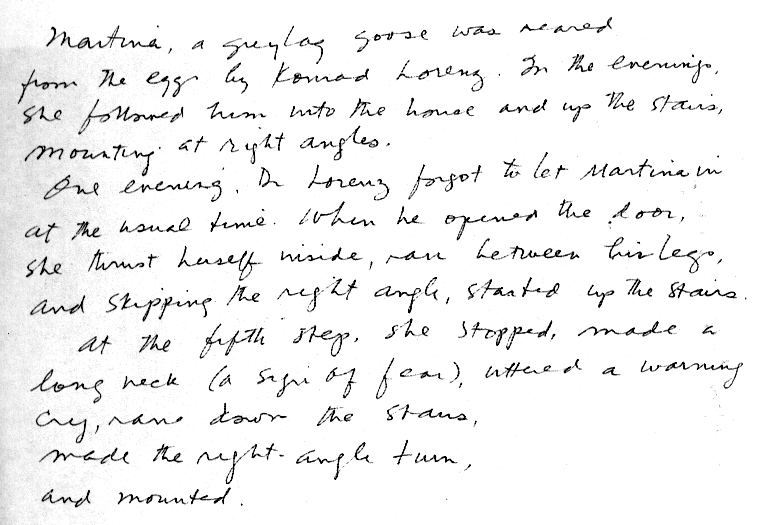 Martina, a greylag goose was reared
from the egg by Konrad Lorenz. In the evenings,
she followed him into the house and up the stairs,
mounting at right angles.
One evening, Dr Lorenz forgot to let Martina in
at the usual time. When he opened the door,
she thrust herself inside, ran between his legs,
and skipping the right angle, started up the stairs.
At the fifth step, she stopped, made a
long neck (a sign of fear), uttered a warning
cry, ran down the stairs,
made the right-angle turn,
and mounted.